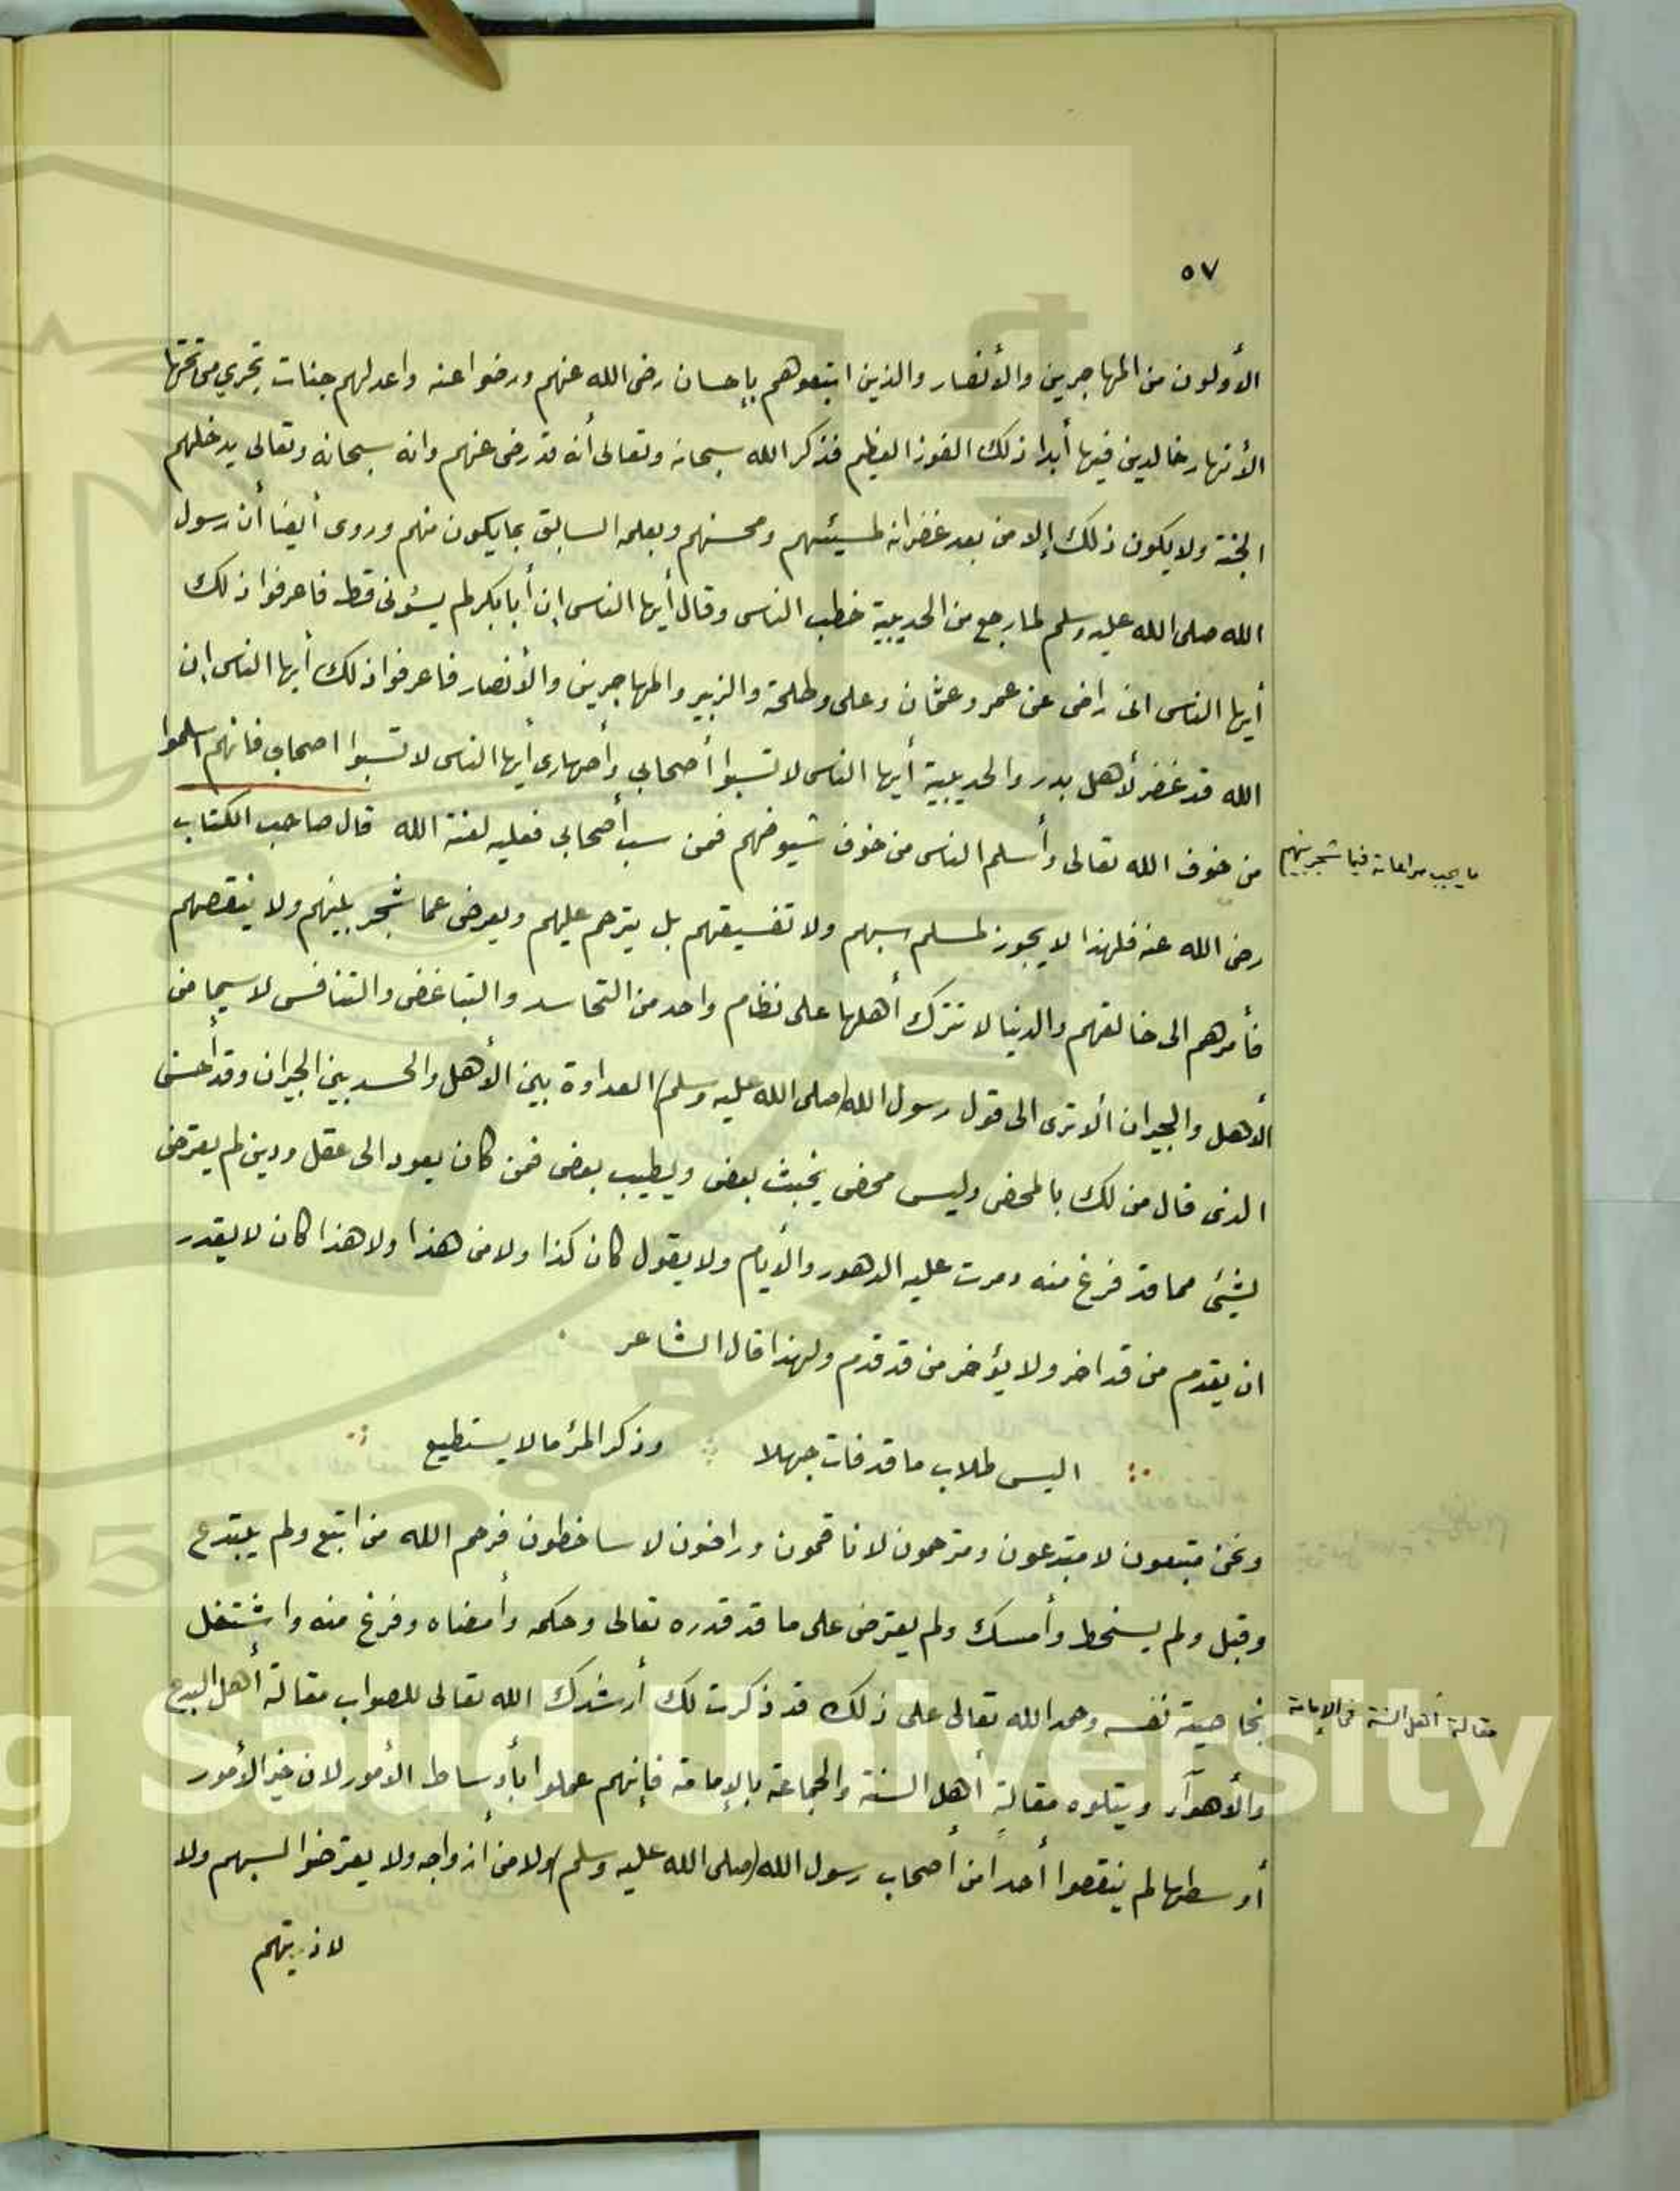 ٥٧
الأولون من المهاجرين والأنصار والذين اتبعوهم بإحسان رضى الله عنهم ورضوا عنه واعد لهم جنات تجري من تحتها
الأنهار خالدين فيها أبدا ذلك الفوز العظيم فذكر الله سبحانه وتعالى أنه قد رضى عنهم وانه سبحانه وتعالى يدخلهم
الجنة ولا يكون ذلك إلا من بعد غفرانه لمسيئهم ومحسنهم وبعلمه السابق بما يكون منهم وروى أيضا أن رسول
الله صلى الله عليه وسلم لما رجع من الحديبية خطب الناس وقال أيها الناس إن أبا بكر لم يسؤنى قط فاعرفوا ذلك
أيها الناس انى راضى عن عمر وعثمان وعلى وطلحة والزبير والمهاجرين والأنصار فاعرفوا ذلك أيها الناس إن
الله قد غفر لأهل بدر والحديبية أيها الناس لا تسبوا أصحابي وأصهارى أيها الناس لا تسبوا اصحابي فانهم اسلموا
من خوف الله تعالى وأسلم الناس من خوف سيوفهم فمن سب أصحابي فعليه لعنة الله قال صاحب الكتاب
ما يجب مراعاته فيما شجر بينهم
رضى الله عنه فلهذا لا يجوز لمسلم سبهم ولا تفسيقهم بل يترحم عليهم ويعرض عما شجر بينهم ولا ينقصهم
فأمرهم الى خالقهم والدنيا لا تترك أهلها على نظام واحد من التحاسد والتباغض والتنافس لا سيما من
الأهل والجيران ألا ترى الى قول رسول الله (صلى الله عليه وسلم) العداوة بين الأهل والحسد بين الجيران وقد أحسن
الذى قال من لك بالمحض وليس محض يخبث بعض ويطيب بعض فمن كان يعود الى عقل ودين لم يعترض
بشئ مما قد فرغ منه ومرت عليه الدهور والأيام ولا يقول كان كذا ولا من هذا ولا هذا كان لا يقدر
ان يقدم من قد اخر ولا يؤخر من قد قدم ولهذا قال الشاعر
اليس طلاب ما قد فات جهلا وذكر المرؤ ما لا يستطيع
ونحن متبعون لا مبتدعون ومترحمون لا ناقمون وراضون لا ساخطون فرحم الله من اتبع ولم يبتدع
وقبل ولم يسخط وأمسك ولم يعترض على ما قد قدره تعالى وحكمه وأمضاه وفرغ منه واشتغل
بخاصية نفسه وحمد الله تعالى على ذلك قد ذكرت لك أرشدك الله تعالى للصواب مقالة أهل البدع
مقالة أهل السنة فى الإمامة
والأهوآء ويتلوه مقالة أهل السنة والجماعة بالإمامة فإنهم عملوا بأوساط الأمور لان خير الأمور
أوسطها لم ينقصوا أحدا من أصحاب رسول الله (صلى الله عليه وسلم) ولا من أزواجه ولا يعرضوا لسبهم ولا
لاذيتهم
King Saud University